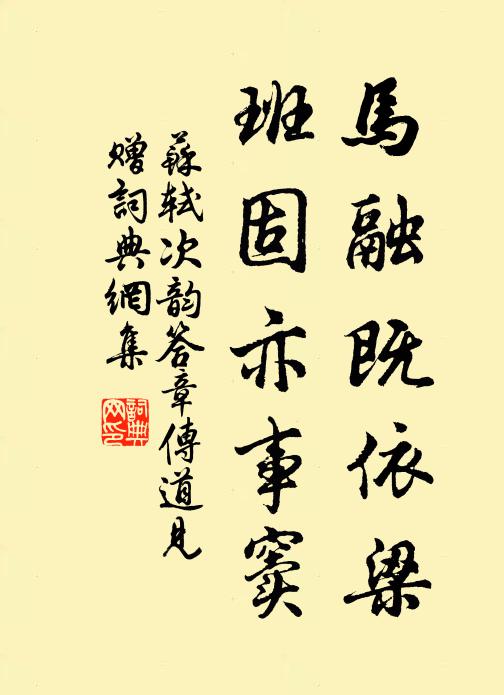 馬融既依梁
班固亦事竇
蘇軾次韵答章傳道見
贈詞典網集
詞典
网印